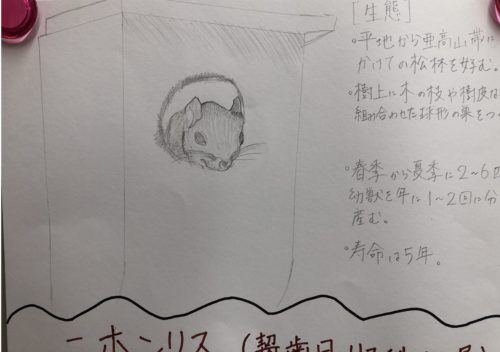 [生態]
・平地から亜高山帯に
かけての松林を好む。
・樹上に木の枝や樹皮な
組み合わせた球形の巣をつ
・春季から夏季に2~6
幼獣を年に1~2回に分
産む。
・寿命は5年。
ニホンリス(齧歯目リス